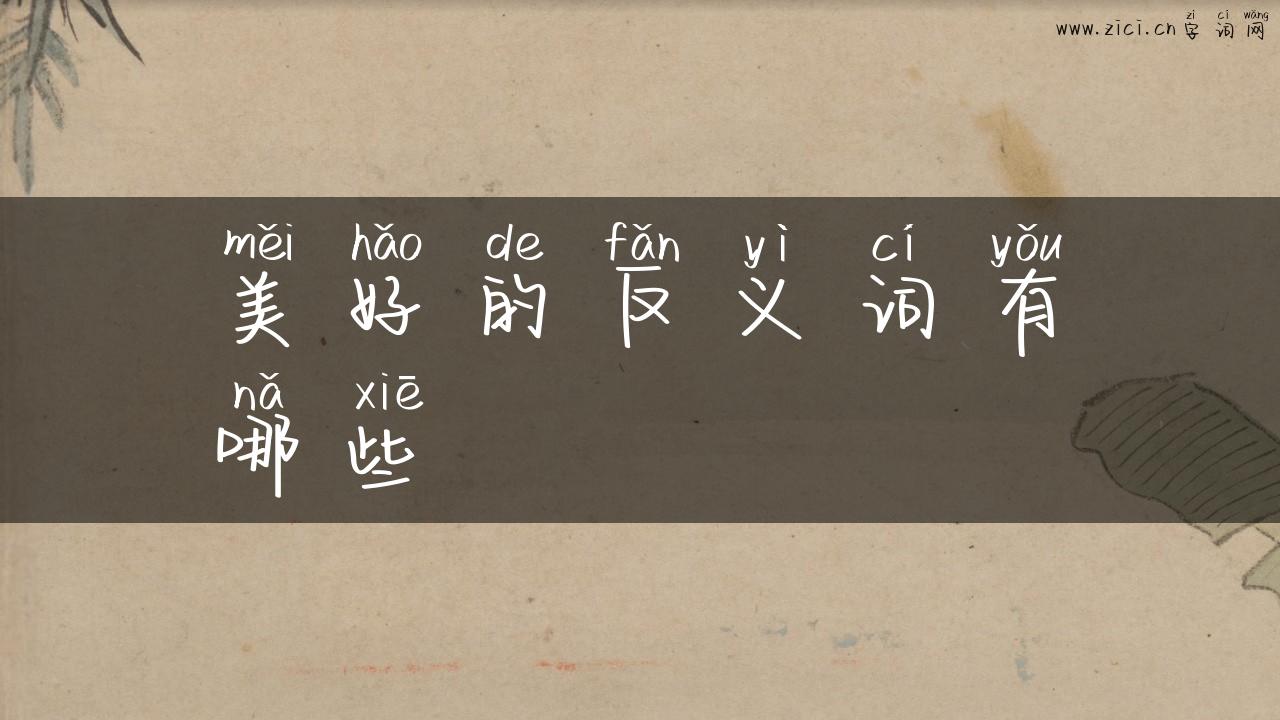 zì cí wǎng
www.zici.cn 字词网
měi hǎo de fǎn yì cí yǒu
美好的反义词有
nǎ xiē
哪些